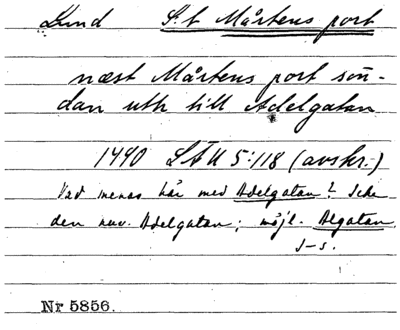 Lund S:t Mårtens port
næst Mårtens port sön-
dan uth till Adelgatan
1490 LÄU 5:118 (avskr.)
Vad menas här med Adelgatan? Icke
den nuv. Adelgatan; möjl. Algatan.
J-s.
Nr 5856.